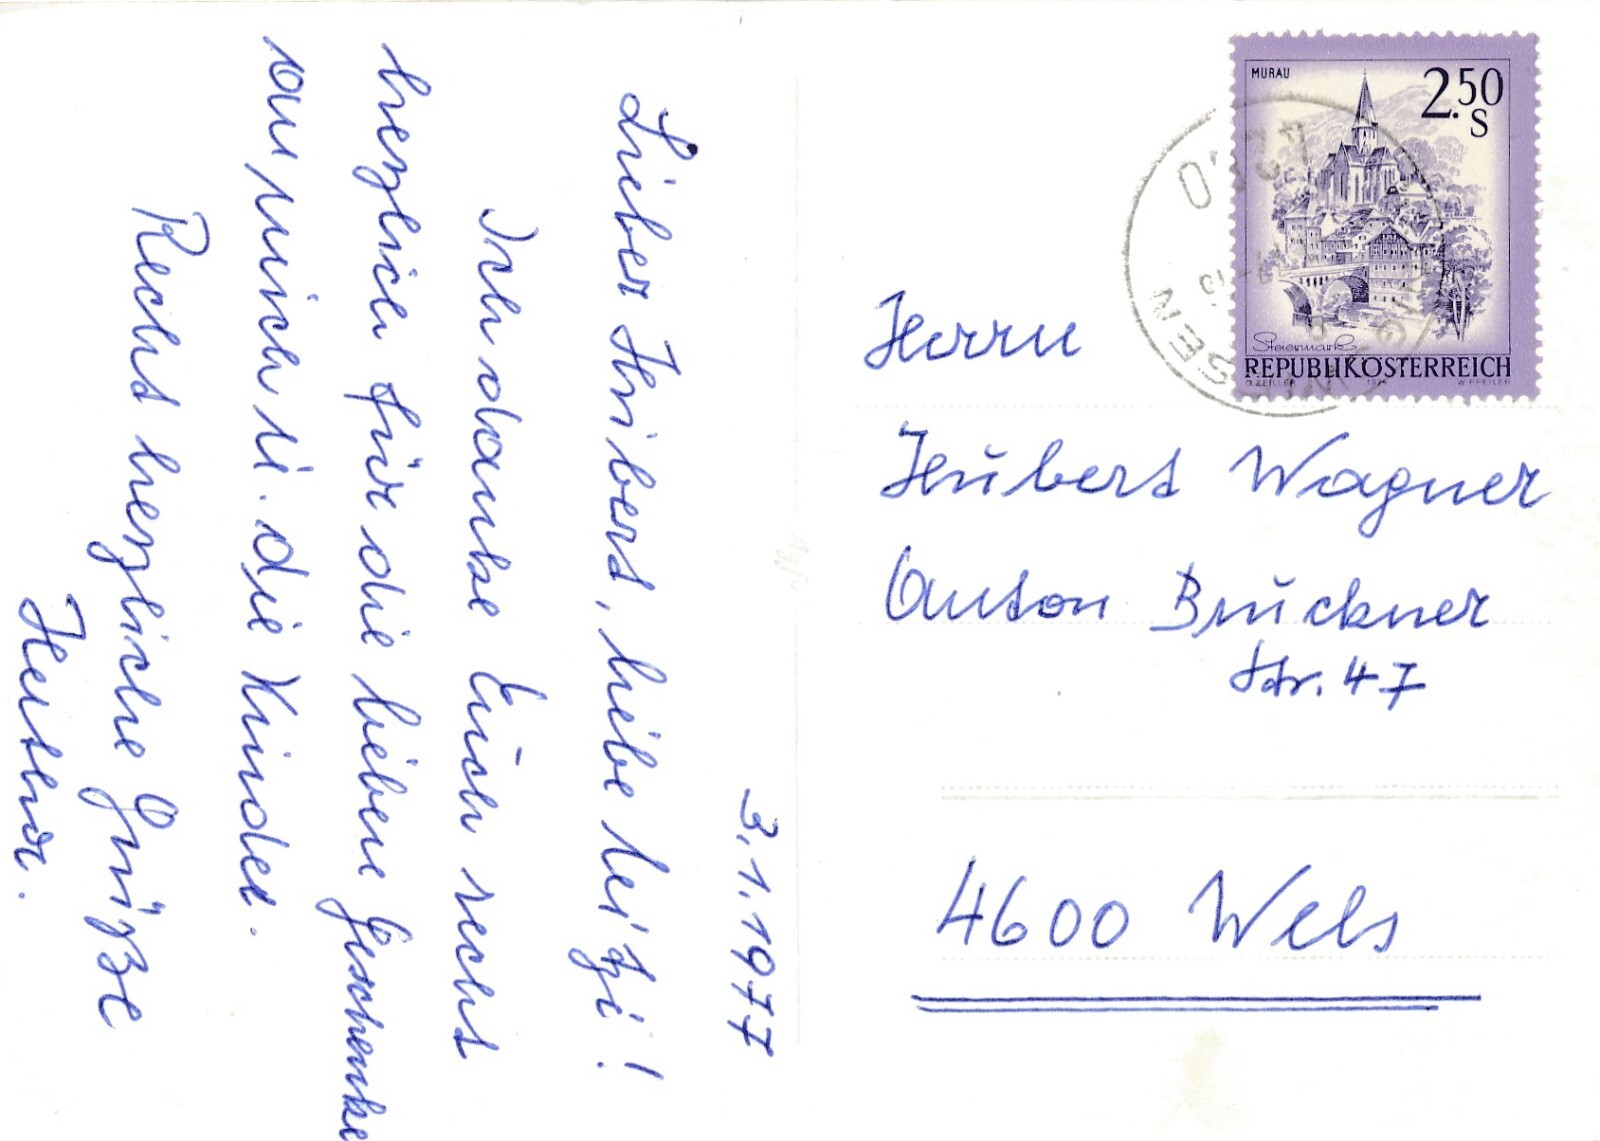 3.1.1977
Lieber Hubert, liebe Leitzi!
Ich danke Euch recht
herzlich für die lieben Geschenke
an mich u. die Kinder.
Recht herzliche Grüße
MURAU
2.50
S
Steiermark
REPUBLIK ÖSTERREICH
O. ZEILLER 1974 W. PFEILER
Herrn
Hubert Wagner
Anton Bruckner
Str. 47
4600 Wels